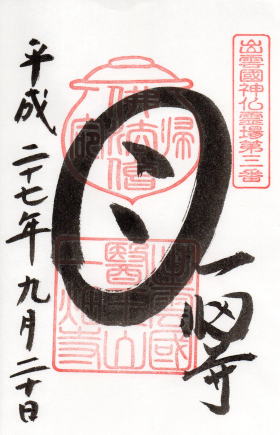 出雲國神仏霊場第三番
佛法僧
一畑寺
出雲國
醫王山
一畑寺
平成二十七年九月二十日